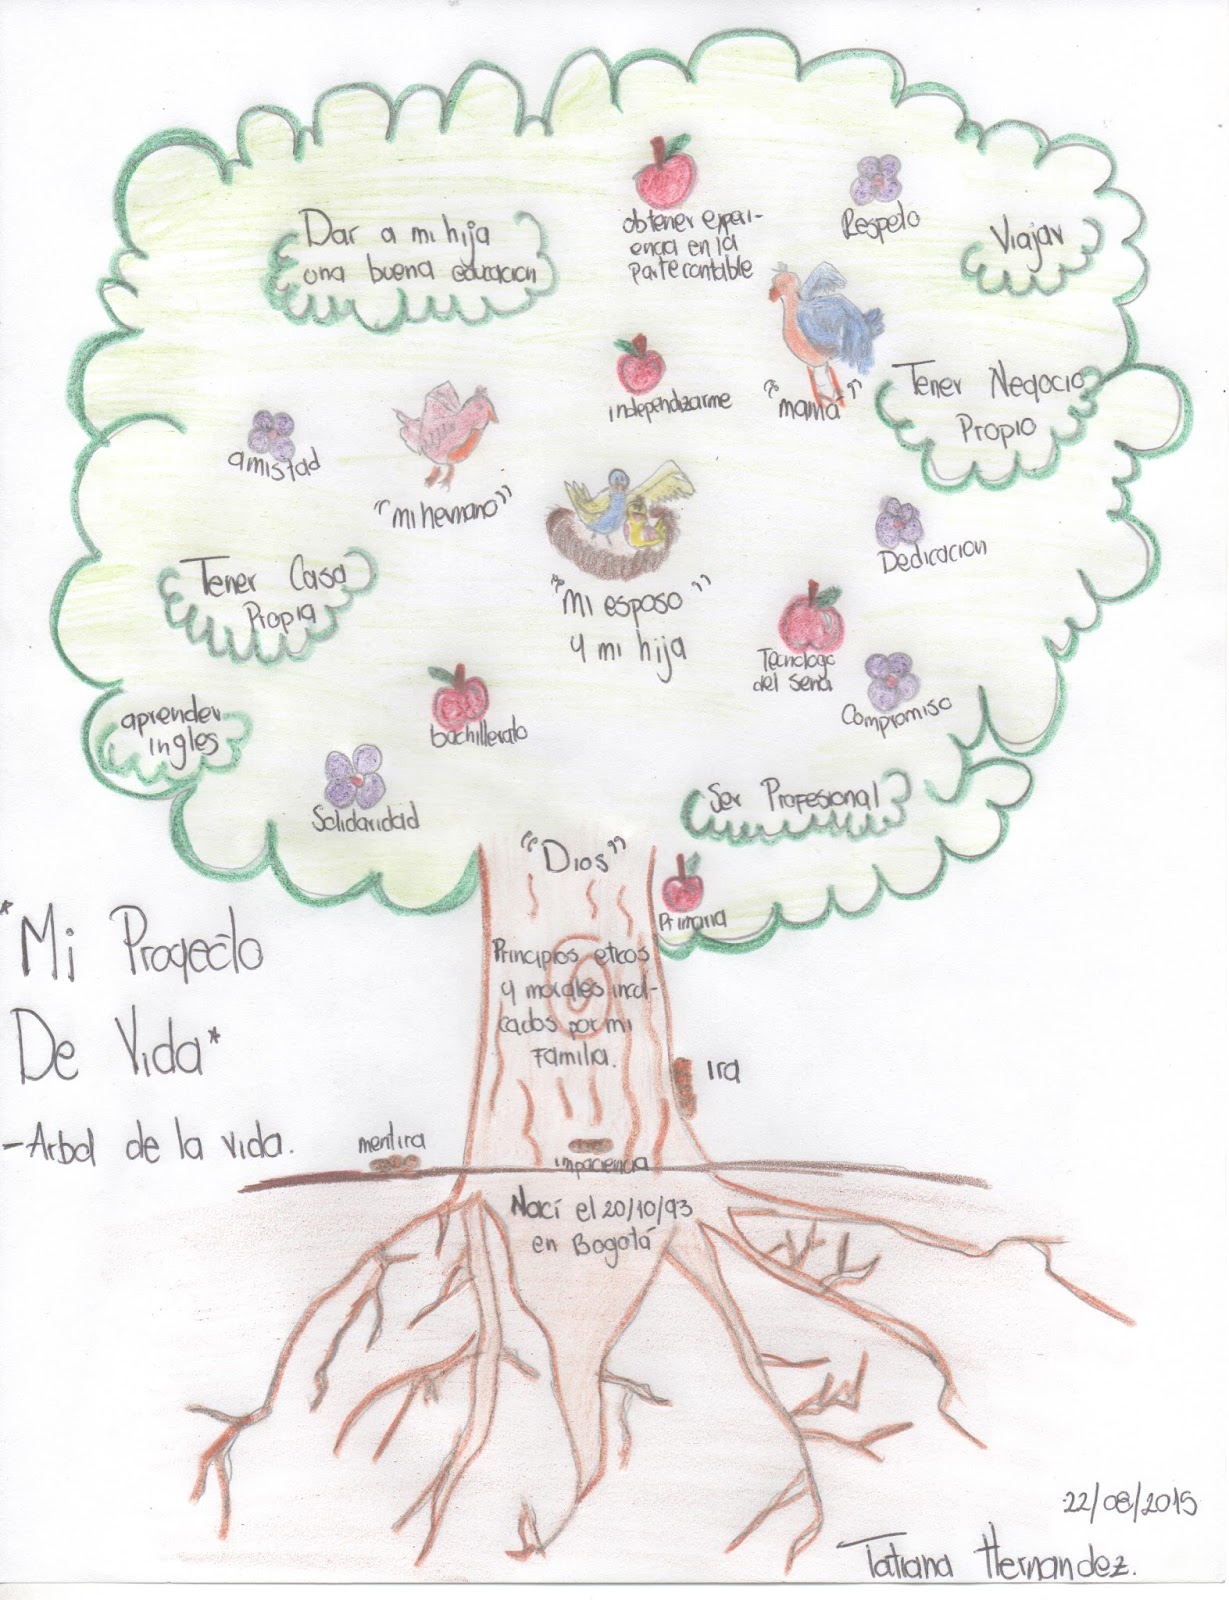 Dar a mi hija
una buena educacion
obtener experi-
encia en la
parte contable
Respeto
Viajar
independizarme
"mamá"
Tener Negocio
Propio
amistad
"mi hermano"
"Mi esposo"
y mi hija
Dedicacion
Tener Casa
Propia
Tecnologo
del sena
Compromiso
aprender
ingles
bachillerato
Solidaridad
Ser Profesional
"Dios"
Primaria
*Mi Proyecto
De Vida*
-Arbol de la vida.
Principios eticos
y morales incul-
cados por mi
Familia.
Ira
mentira
impaciencia
Nací el 20/10/93
en Bogotá
22/08/2015
Tatiana Hernandez.